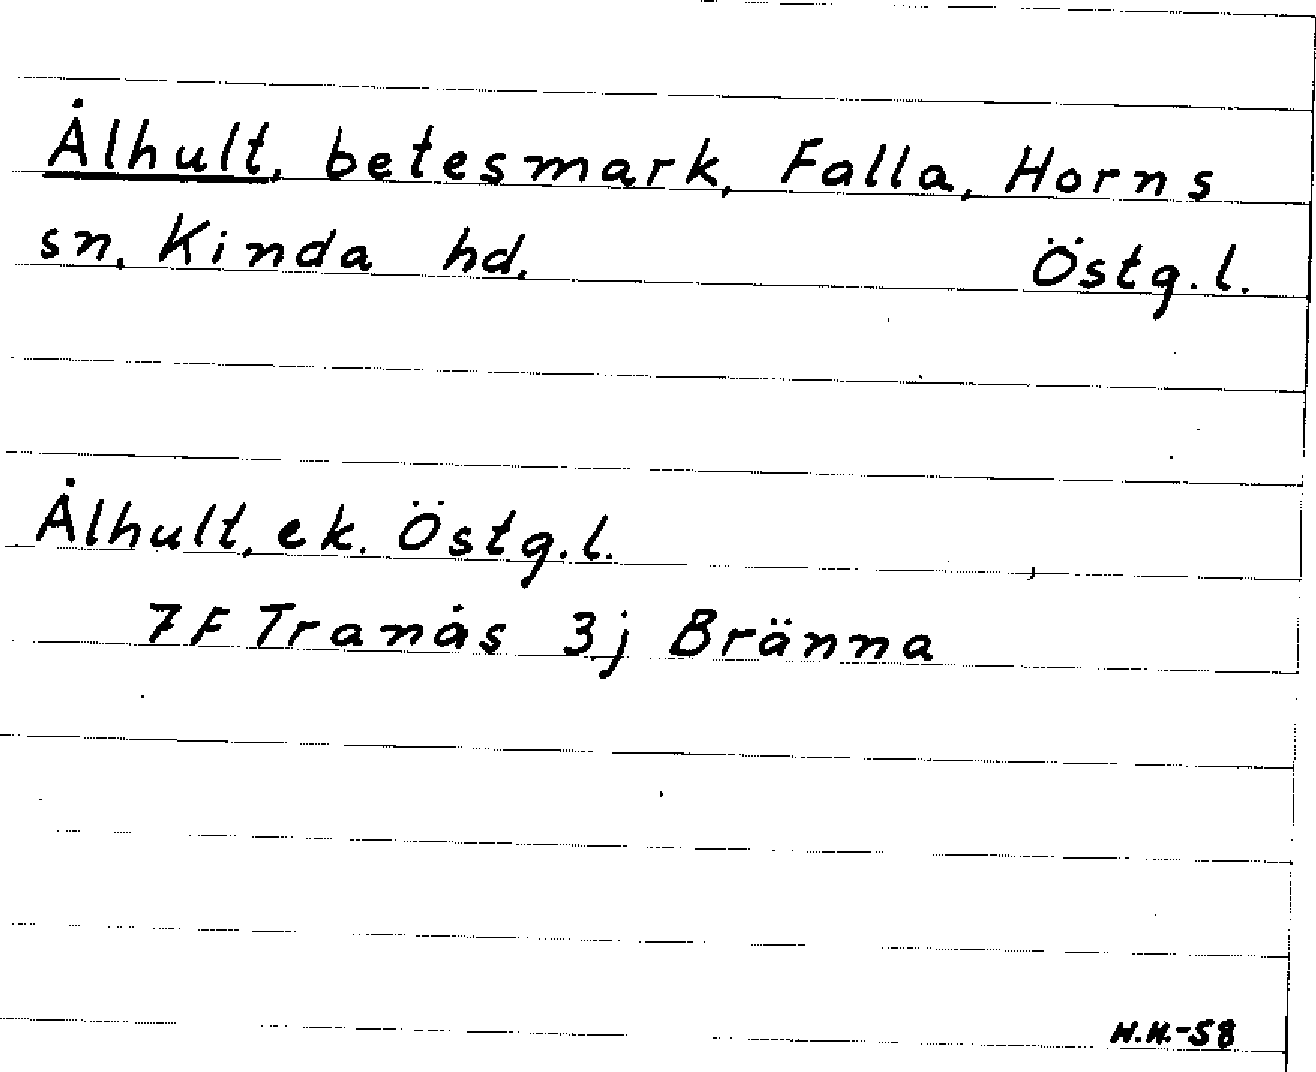 Ålhult, betesmark, Falla, Horns
sn, Kinda hd. Östg.l.
Ålhult, ek. Östg.l.
7F Tranås 3j Bränna
H.H.-58